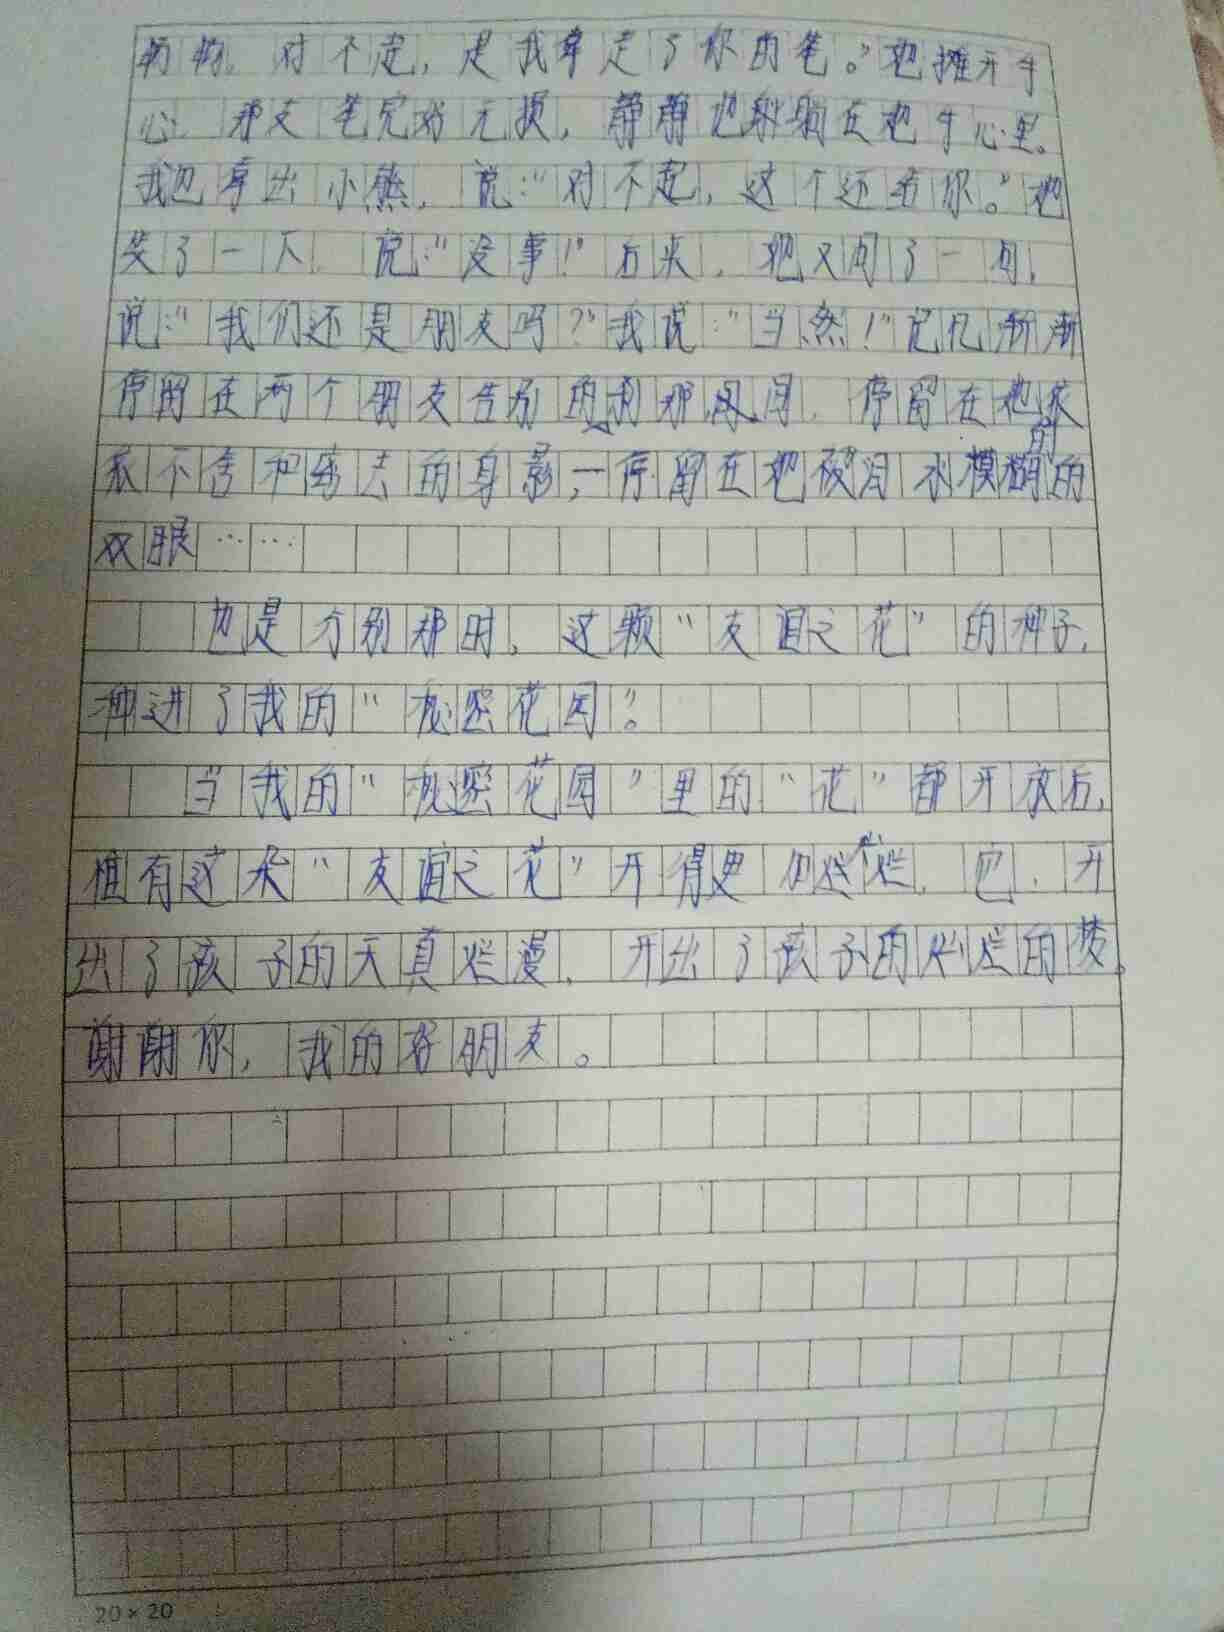 对不起，是我拿走了你的笔。”她摊开手
心，那支笔完好无损，静静地躺在她手心里。
我也拿出小熊，说：“对不起，这个还给你。”她
笑了一下，说：“没事！”后来，她又问了一句，
说：“我们还是朋友吗？”我说：“当然！”记忆渐渐
停留在两个朋友告别的刹那间，停留在她依
依不舍和离去的身影，停留在她被泪水模糊的
双眼……
也是分别那时，这颗“友谊之花”的种子，
种进了我的“秘密花园”。
当我的“秘密花园”里的“花”都开放后，
惟有这朵“友谊之花”开得更加灿烂，它，开
出了孩子的天真烂漫，开出了孩子的灿烂的梦。
谢谢你，我的好朋友。
20×20